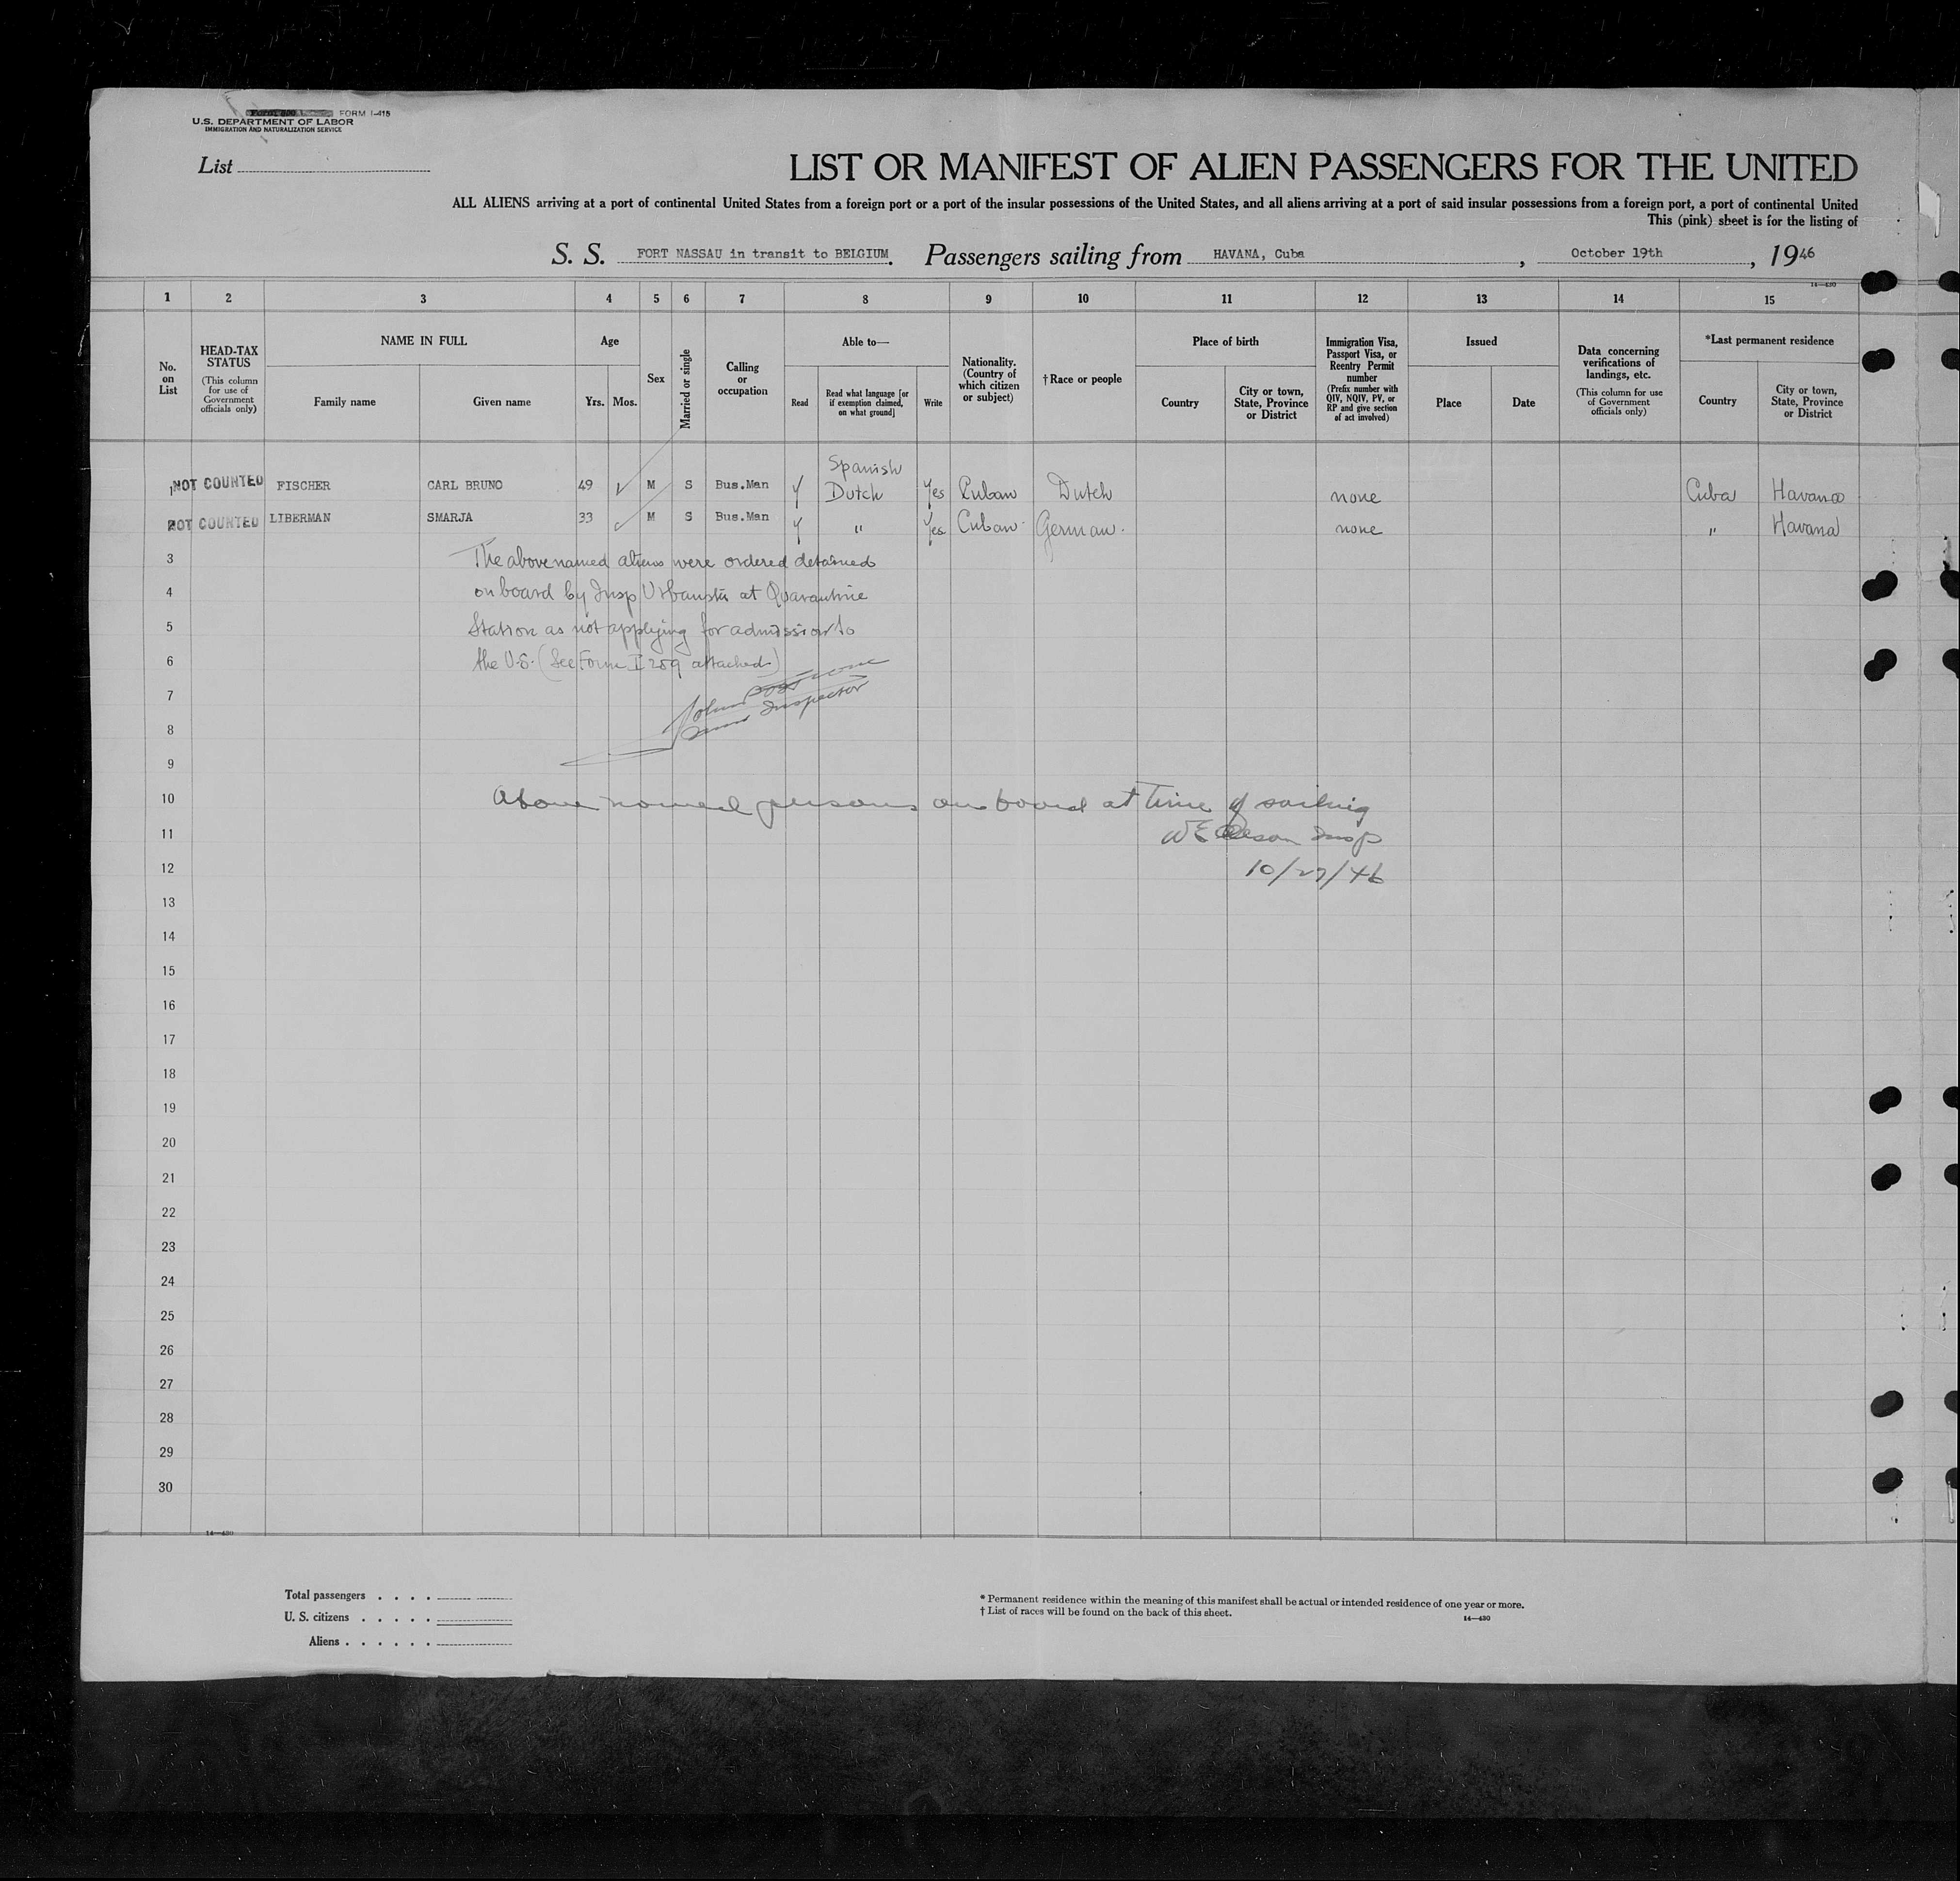 FORM I-415
U.S. DEPARTMENT OF LABOR
IMMIGRATION AND NATURALIZATION SERVICE
List
LIST OR MANIFEST OF ALIEN PASSENGERS FOR THE UNITED
ALL ALIENS arriving at a port of continental United States from a foreign port or a port of the insular possessions of the United States, and all aliens arriving at a port of said insular possessions from a foreign port, a port of continental United
This (pink) sheet is for the listing of
S. S. FORT NASSAU in transit to BELGIUM. Passengers sailing from HAVANA, Cuba, October 19th, 1946
14—430
1 2 3 4 5 6 7 8 9 10 11 12 13 14 15
No. on List
HEAD-TAX STATUS (This column for use of Government officials only)
NAME IN FULL
Family name
Given name
Age
Yrs.
Mos.
Sex
Married or single
Calling or occupation
Able to—
Read
Read what language [or if exemption claimed, on what ground]
Write
Nationality. (Country of which citizen or subject)
†Race or people
Place of birth
Country
City or town, State, Province or District
Immigration Visa, Passport Visa, or Reentry Permit number (Prefix number with QIV, NQIV, PV, or RP and give section of act involved)
Issued
Place
Date
Data concerning verifications of landings, etc. (This column for use of Government officials only)
*Last permanent residence
Country
City or town, State, Province or District
Spanish
1 NOT COUNTED FISCHER CARL BRUNO 49 ✓ M S Bus.Man y Dutch Yes Cuban Dutch none Cuba Havana
NOT COUNTED LIBERMAN SMARJA 33 ✓ M S Bus.Man y " Yes Cuban German. none " Havana
3 The above named aliens were ordered detained
4 on board by Insp at Quarantine
5 Station as not applying for admission to
6 the U.S. (See Form I 259 attached)
7 John
Inspector
8
9
10 Above named persons on board at time of sailing
11 Insp
12 10/27/46
13
14
15
16
17
18
19
20
21
22
23
24
25
26
27
28
29
30
14—430
Total passengers . . . .
U. S. citizens . . . . .
Aliens . . . . . .
* Permanent residence within the meaning of this manifest shall be actual or intended residence of one year or more.
† List of races will be found on the back of this sheet.
14—430